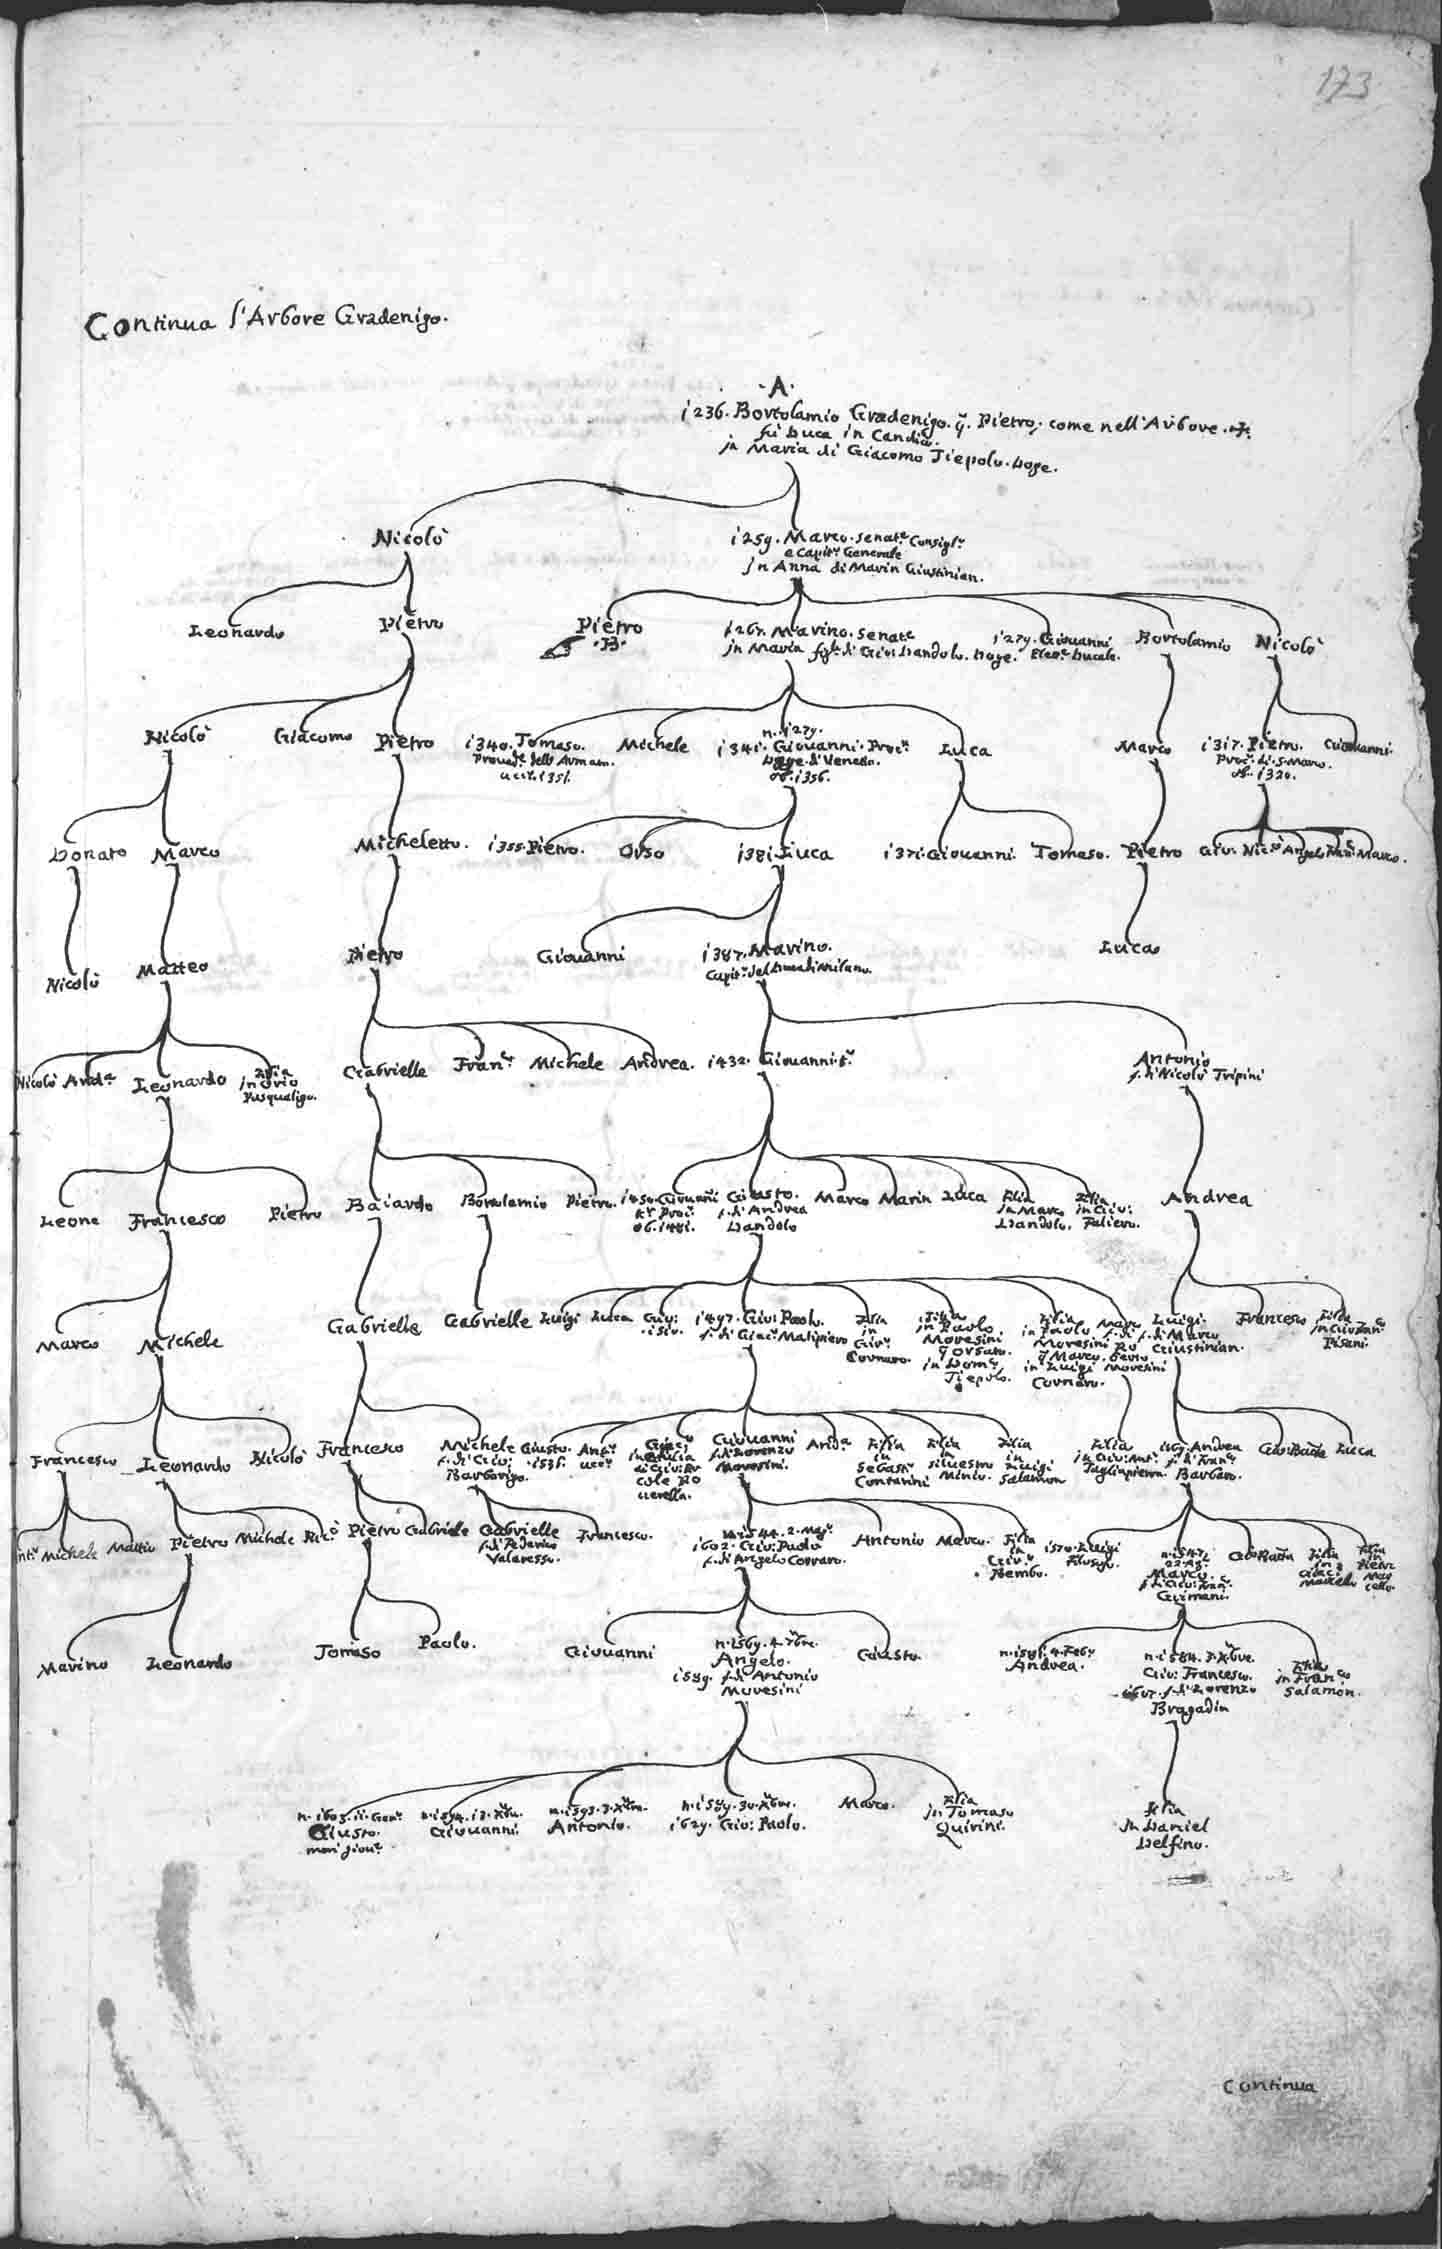 173
Continua l'Arbore Gradenigo.
.A.
1236. Bortolamio Gradenigo. q. Pietro, come nell'Arbore
fù Duca in Candia.
in Maria di Giacomo Tiepolo Doge.
Nicolò
1259. Marco senat.e Consigl.r
e Capit.o Generale
in Anna di Marin Giustinian.
Leonardo
Pietro
Pietro
.B.
1267. Marino. senat.e
in Maria figl.a di Giov: Dandolo. Doge.
1279. Giovanni
Elet.r Ducale.
Bortolamio
Nicolò
Nicolò
Giacomo
Pietro
1340. Tomaso.
Proued.r dell'Armam.
ucis. 1351.
Michele
n. 1279.
1341. Giovanni. Proc.r
Doge di Venetia.
ob. 1356.
Luca
Marco
1317. Pietro.
Proc.r di S. Marco.
ob. 1320.
Giovanni.
Donato
Marco
Micheletto.
1355. Pietro.
Orso
1381. Luca
1371. Giovanni.
Tomaso.
Pietro
Gio: Nic.ò Angelo Marco.
Nicolò
Matteo
Pietro
Giovanni
1387. Marino.
Capit.o del Duca di Milano.
Luca
Nicolò And.a Leonardo
Filia
in Orio
Pasqualigo.
Gabrielle
Fran.co
Michele
Andrea.
1432. Giovanni
Antonio
f. di Nicolò Tripini
Leone
Francesco
Pietro
Baiardo
Bortolamio
Pietro.
1450. Giovanni
K.r Proc.r
ob. 1481.
Giusto.
f. di Andrea
Dandolo
Marco
Marin
Luca
Filia
in Marco
Dandolo.
Filia
in Giu:
Faliero.
Andrea
Marco
Michele
Gabrielle
Gabrielle
Luigi
Luca
Giu:
1497. Giu: Paolo.
f. di Giac.o Malipiero
Filia
in
Giu:
Cornaro.
Filia
in Paolo
Moresini
q Orsato.
in Dom.o
Tiepolo.
Filia
in Paolo
Moresini
q Marco.
in Luigi
Cornaro.
Marco
Moresini
Luigi.
f. di Marco
Giustinian.
Francesco
Filia
Pisani.
Francesco
Leonardo
Nicolò
Francesco
Michele
f. di Giu:
Barbarigo.
Giusto.
Ant.o
Giac.o
Giovanni
f. di Lorenzo
Moresini.
And.a
Filia
in
Sebast.n
Contarini
Filia
in
Siluestro
Minio.
Filia
in
Luigi
Salamon
Filia
in Giu: Ant.o
Tagliapietra.
Andrea
f. di Fran.co
Barbaro.
Gio: Batta
Luca
Michele
Mattio
Pietro
Michele
Nic.ò
Pietro
Gabriele
Gabrielle
f. di Federico
Valaresso.
Francesco.
n. 1544. 2. Mag.o
1602. Giu: Paolo
f. di Angelo Corraro.
Antonio
Marco.
Filia
in
Giu:
Bembo.
1570. Luigi
22. Ag.
Marco.
f. di Giu: Fran.co
Grimani.
Gio Batta
Filia
in
Giac.o
Marcello
Filia
in
Pietro
Marcello.
Marino
Leonardo
Tomaso
Paolo.
Giovanni
n. 1569. 4. 7bre.
Angelo.
1589. f. di Antonio
Moresini
Giusto.
n. 1581. 4. Feb.o
Andrea.
n. 1584. 7. Xbre.
Giu: Francesco.
1607. f. di Lorenzo
Bragadin
Filia
in Fran.co
Salamon.
n. 1603. 11. Gen.o
Giusto.
morì giou.e
Giovanni.
Antonio.
n. 1589. 30. Xbre.
1629. Gio: Paolo.
Marco.
Filia
in Tomaso
Quirini.
Filia
in Daniel
Delfino.
Continua